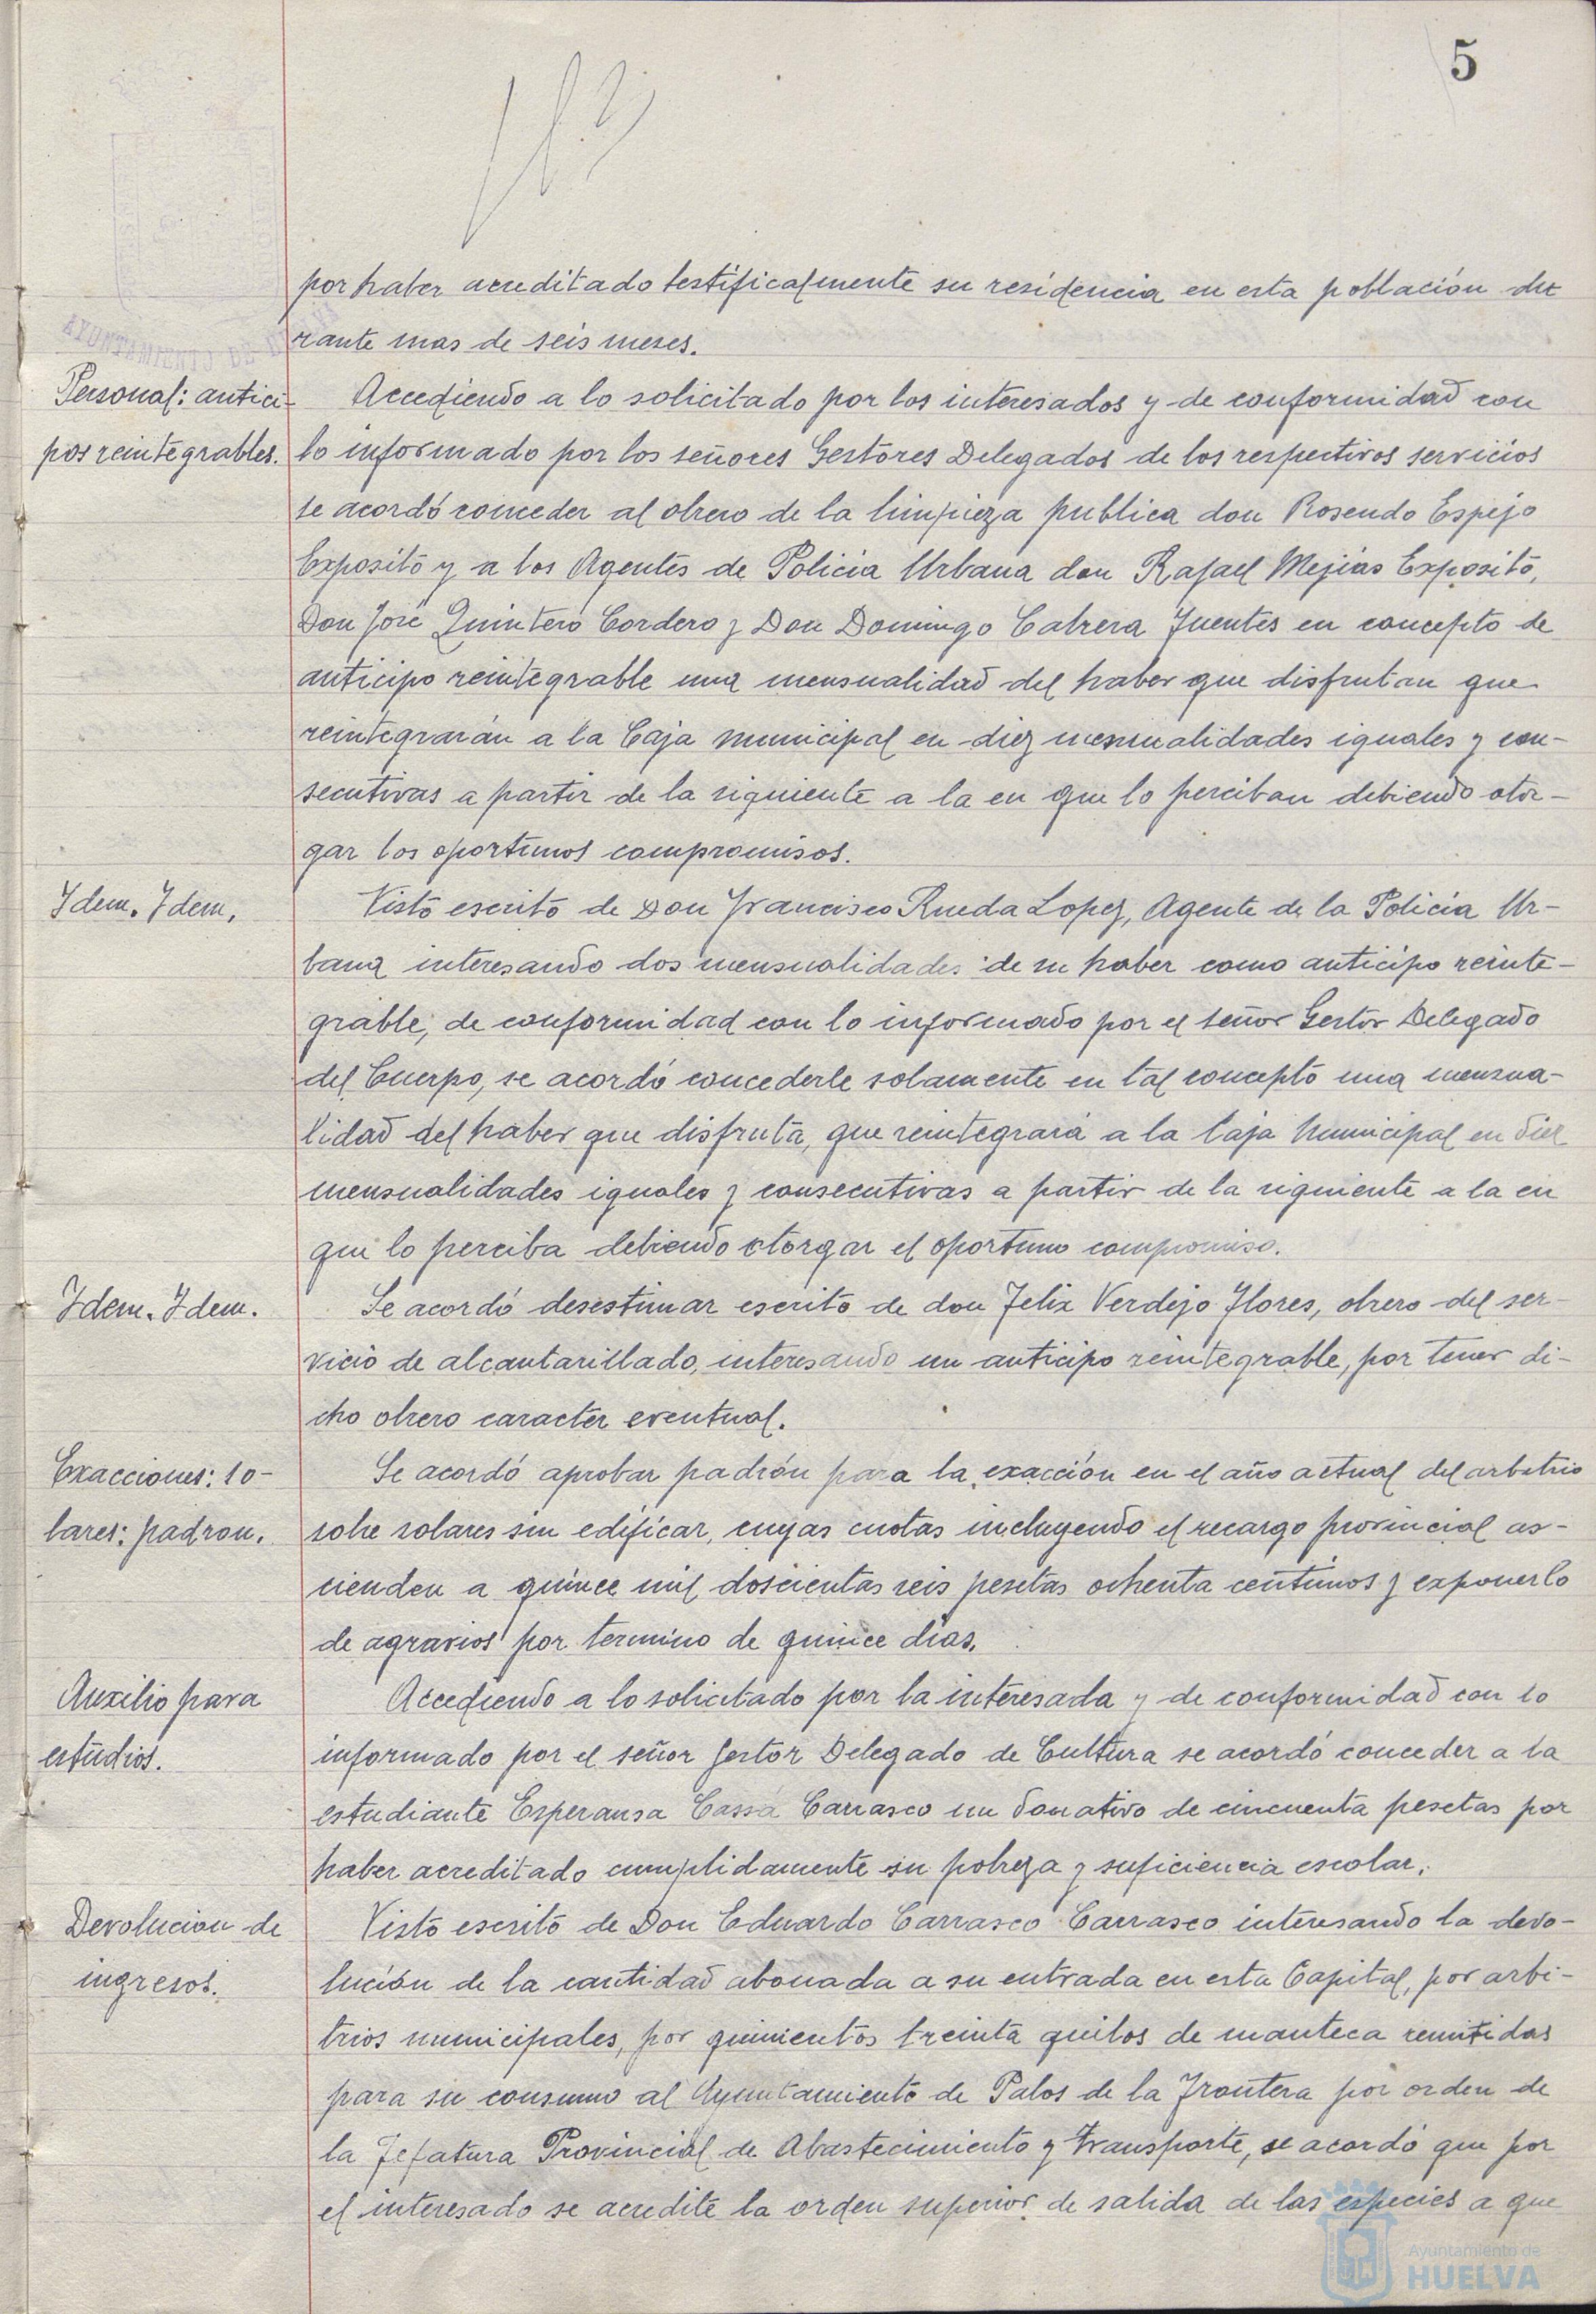 5
por haber acreditado testificalmente su residencia en esta población du
rante mas de seis meses.
Personal: antici-
pos reintegrables.
Accediendo a lo solicitado por los interesados y de conformidad con
lo informado por los señores Gestores Delegados de los respectivos servicios
se acordó conceder al obrero de la limpieza publica don Rosendo Espejo
Exposito y a los Agentes de Policia Urbana don Rafael Mejias Exposito,
Don José Quintero Cordero y Don Domingo Cabrera Fuentes en concepto de
anticipo reintegrable una mensualidad del haber que disfrutan que
reintegrarán a la Caja municipal en diez mensualidades iguales y con-
secutivas a partir de la siguiente a la en que lo perciban debiendo otor-
gar los oportunos compromisos.
Idem. Idem.
Visto escrito de Don Francisco Rueda Lopez, Agente de la Policía Ur-
bana interesando dos mensualidades de su haber como anticipo reinte-
grable, de conformidad con lo informado por el señor Gestor Delegado
del Cuerpo, se acordó concederle solamente en tal concepto una mensua-
lidad del haber que disfruta, que reintegrará a la Caja Municipal en diez
mensualidades iguales y consecutivas a partir de la siguiente a la en
que lo perciba debiendo otorgar el oportuno compromiso.
Idem. Idem.
Se acordó desestimar escrito de don Felix Verdejo Flores, obrero del ser-
vicio de alcantarillado, interesando un anticipo reintegrable, por tener di-
cho obrero caracter eventual.
Exacciones: so-
lares: padron.
Se acordó aprobar padrón para la exacción en el año actual del arbitrio
sobre solares sin edificar, cuyas cuotas incluyendo el recargo provincial as-
cienden a quince mil doscientas seis pesetas ochenta centimos y exponerlo
de agravios por termino de quince dias.
Auxilio para
estudios.
Accediendo a lo solicitado por la interesada y de conformidad con lo
informado por el señor Gestor Delegado de Cultura se acordó conceder a la
estudiante Esperansa Cassá Carrasco un donativo de cincuenta pesetas por
haber acreditado cumplidamente su pobreza y suficiencia escolar.
Devolucion de
ingresos.
Visto escrito de Don Eduardo Carrasco Carrasco interesando la devo-
lución de la cantidad abonada a su entrada en esta Capital, por arbi-
trios municipales, por quinientos treinta quilos de manteca remitidas
para su consumo al Ayuntamiento de Palos de la Frontera por orden de
la Jefatura Provincial de Abastecimiento y transporte, se acordó que por
el interesado se acredite la orden superior de salida de las especies a que
Ayuntamiento de
HUELVA